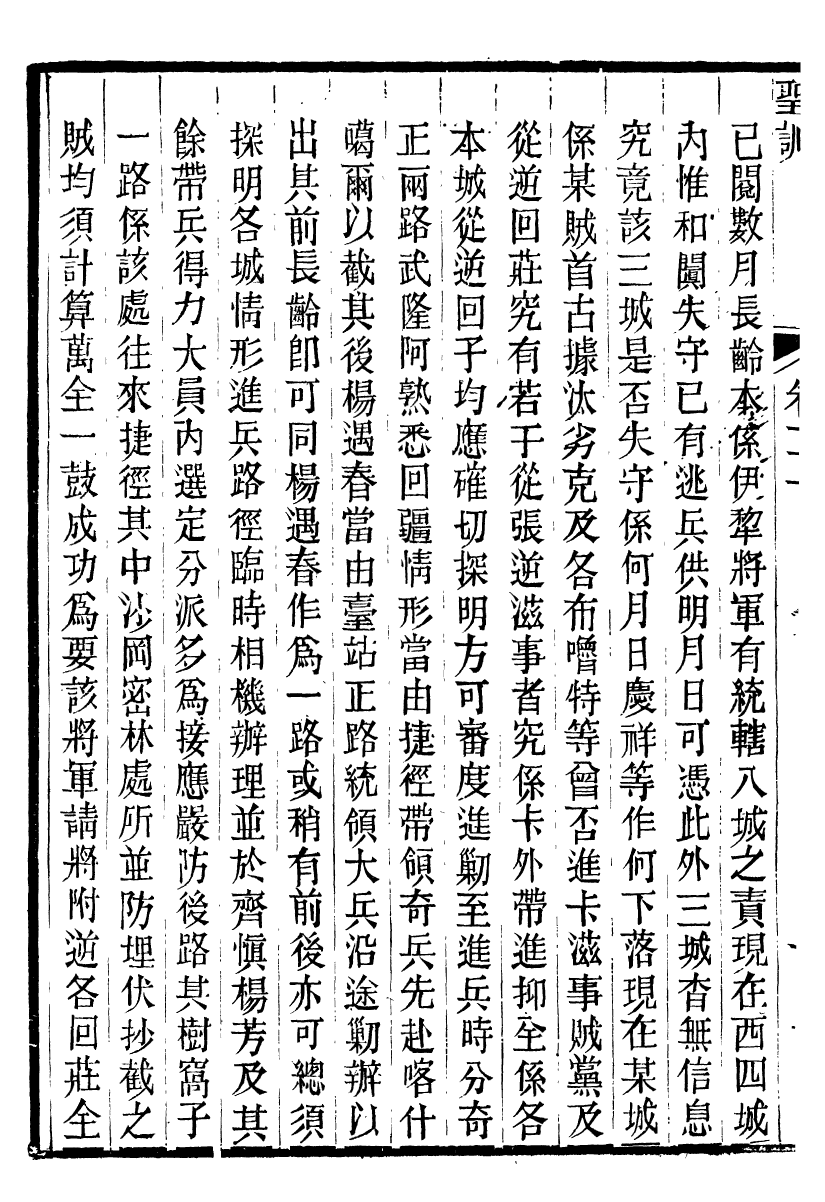 聖訓
卷二十
已閱數月長齡本係伊犂將軍有統轄八城之責現在西四城
內惟和闐失守已有逃兵供明月日可憑此外三城杳無信息
究竟該三城是否失守係何月日慶祥等作何下落現在某城
係某賊首占據汰劣克及各布嚕特等曾否進卡滋事賊黨及
從逆回莊究有若干從張逆滋事者究係卡外帶進抑全係各
本城從逆回子均應確切探明方可審度進勦至進兵時分奇
正兩路武隆阿熟悉回疆情形當由捷徑帶領奇兵先赴喀什
噶爾以截其後楊遇春當由臺站正路統領大兵沿途勦辦以
出其前長齡卽可同楊遇春作爲一路或稍有前後亦可總須
探明各城情形進兵路徑臨時相機辦理並於齊愼楊芳及其
餘帶兵得力大員內選定分派多爲接應嚴防後路其樹窩子
一路係該處往來捷徑其中沙岡密林處所並防埋伏抄截之
賊均須計算萬全一鼓成功爲要該將軍請將附逆各回莊全